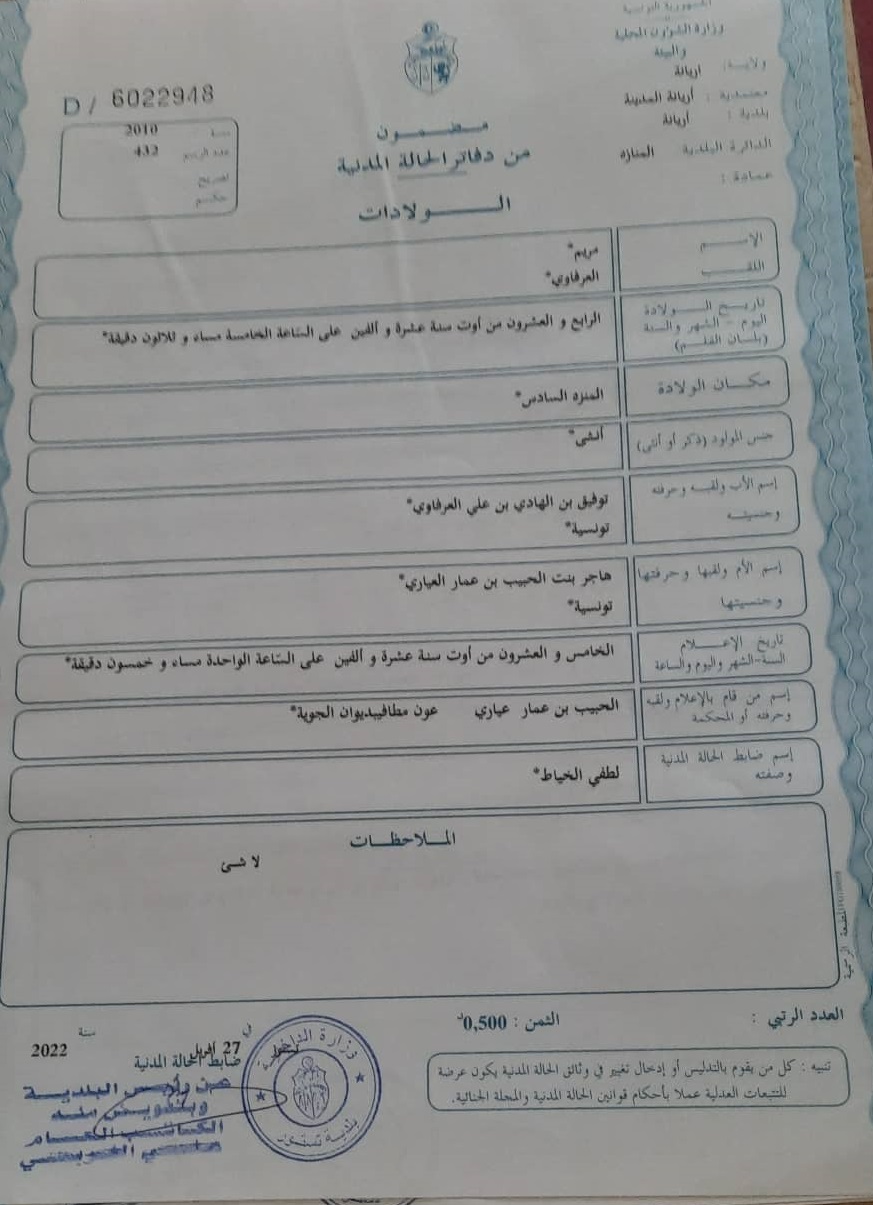 الجمهورية التونسية
وزارة الشؤون المحلية
والبيئة
ولاية: أريانة
معتمدية : أريانة المدينة
بلدية : أريانة
الدائرة البلدية المنازه
عمادة :
D / 6022948
سنة 2010
عدد الرسم 432
تصريح
حكم
مضمون
من دفاتر الحالة المدنية
الولادات
الإسم مريم*
اللقب العرفاوي*
تاريخ الولادة
اليوم - الشهر والسنة
(بلسان القلم)
الرابع و العشرون من أوت سنة عشرة و ألفين على الساعة الخامسة مساء و ثلاثون دقيقة*
مكان الولادة المنزه السادس*
جنس المولود (ذكر أو أنثى) أنثى*
إسم الأب ولقبه وحرفته توفيق بن الهادي بن علي العرفاوي*
وجنسيته تونسية*
إسم الأم ولقبها وحرفتها هاجر بنت الحبيب بن عمار العياري*
وجنسيتها تونسية*
تاريخ الإعلام
السنة-الشهر واليوم والساعة
الخامس و العشرون من أوت سنة عشرة و ألفين على الساعة الواحدة مساء و خمسون دقيقة*
إسم من قام بالإعلام ولقبه
وحرفته أو المحكمة
الحبيب بن عمار عياري عون مطافيبديوان الجوية*
إسم ضابط الحالة المدنية
وصفته
لطفي الخياط*
الملاحظات
لا شئ
المطبعة الرسمية
العدد الرتبي :
الثمن : 0,500د
تنبيه : كل من يقوم بالتدليس أو إدخال تغيير في وثائق الحالة المدنية يكون عرضة
للتتبعات العدلية عملا بأحكام قوانين الحالة المدنية والمجلة الجنائية.
في 27 افريل سنة 2022
ضابط الحالة المدنية
عن رئيس البلدية
وبتفويض منه
الكاتب العام
وزارة الداخلية
بلدية